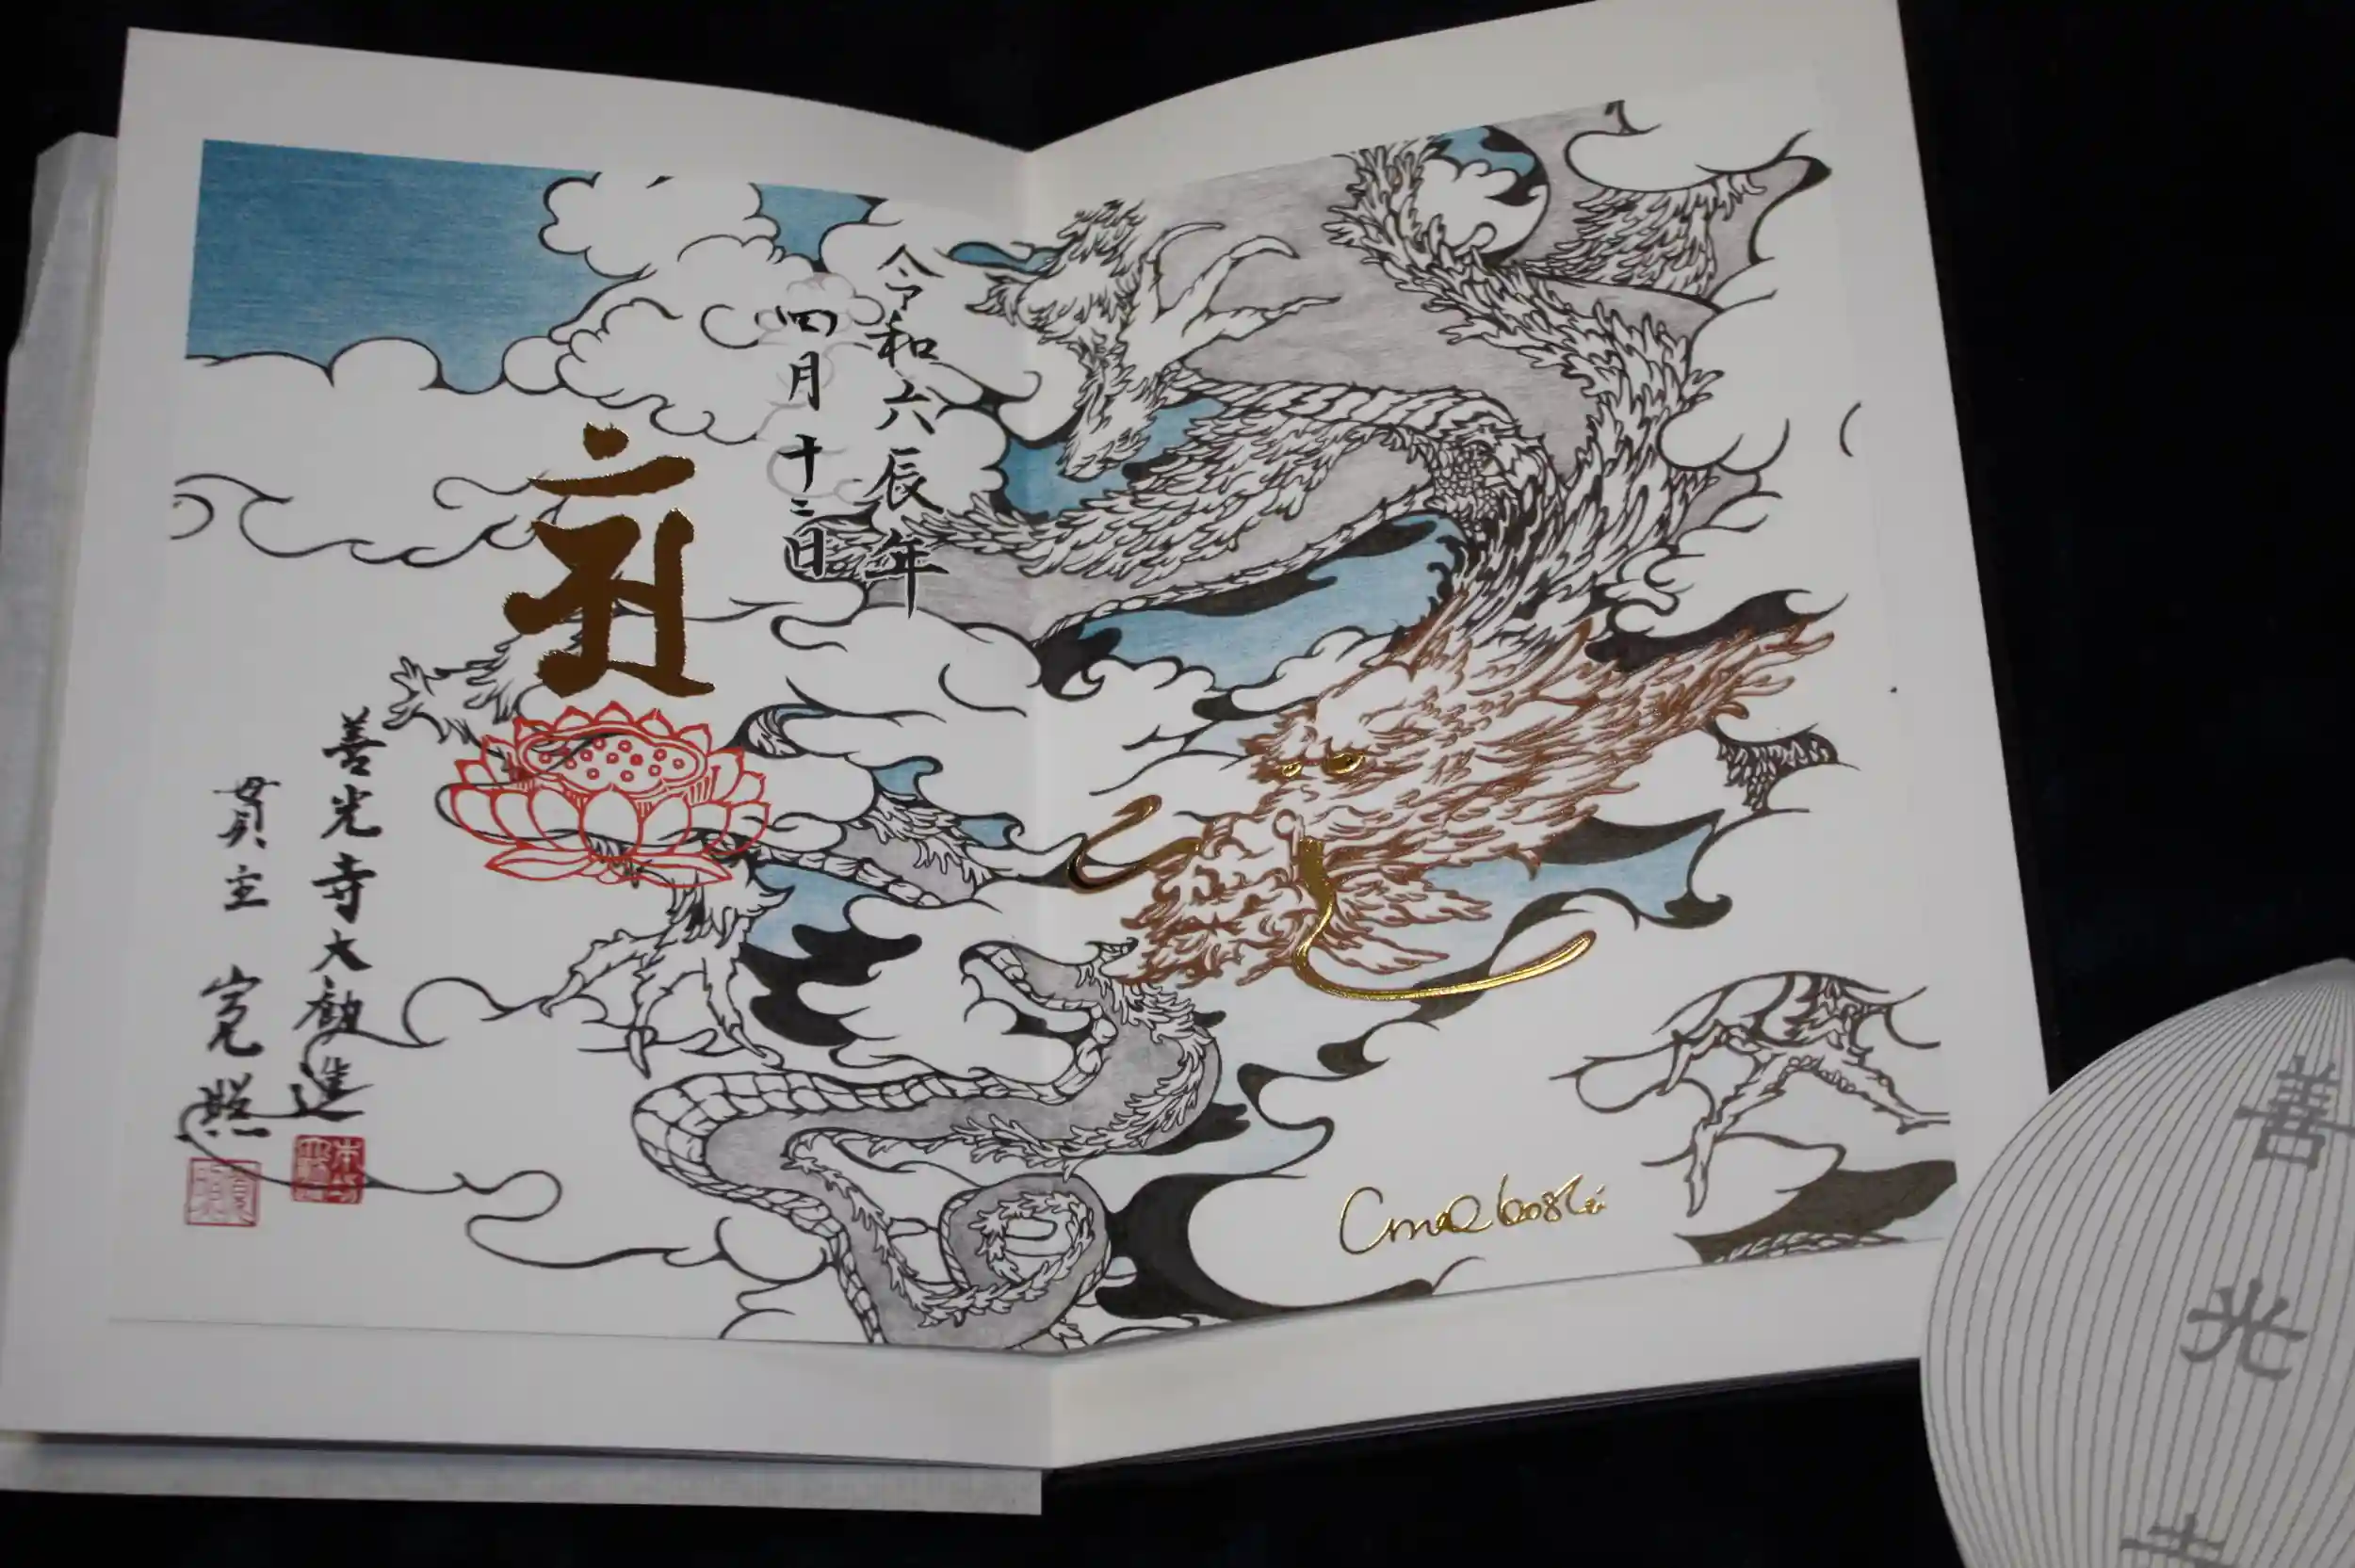 令和六辰年
四月十三日
善光寺大勧進
貫主 寛照
善光寺